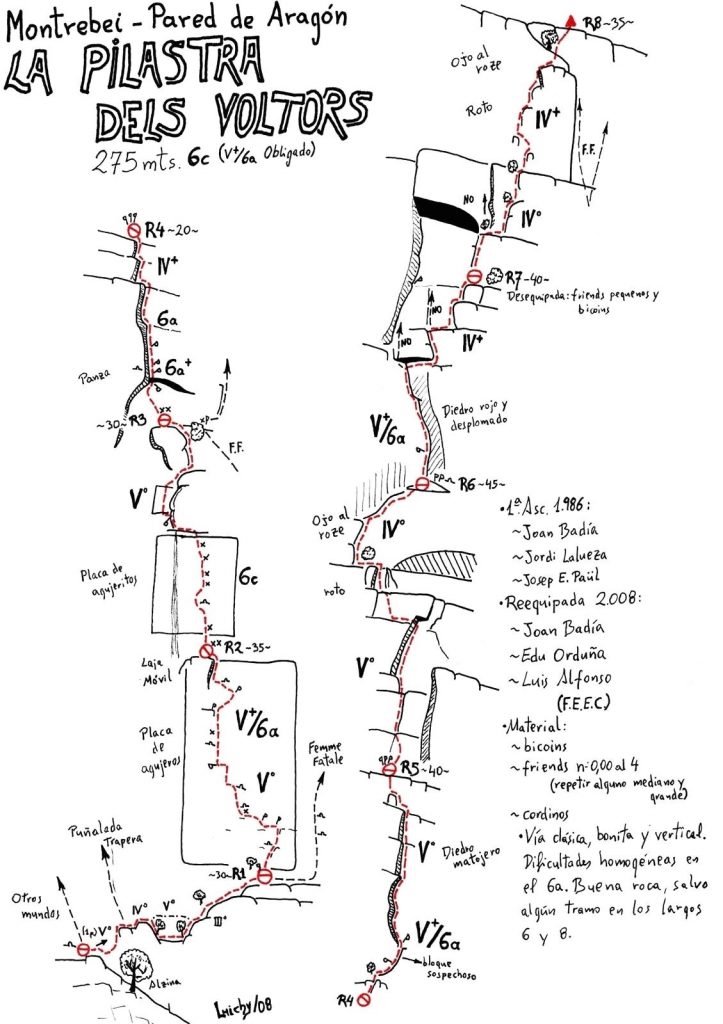 Montrebei - Pared de Aragón
LA PILASTRA
DELS VOLTORS
275 mts. 6c (V+/6a Obligado)
R4 ~20~
IV+
6a
6a+
Panza
~30~ R3
xp
F.F.
V°
Placa de
agujeritos
6c
R2 ~35~
Laja
Móvil
V+/6a
Placa
de
agujeros
V°
Femme
Fatale
Puñalada
Trapera
~30~ R1
Otros
mundos
V°
IV°
V°
III°
Alzina
Luichy/08
R8 ~35~
Ojo al
roze
Roto
IV+
F.F.
NO
IV°
R7 ~40~
Desequipada: friends pequenos y
bicoins
NO
NO
IV+
V+/6a
Diedro rojo y
desplomado
R6 ~45~
Ojo al
roze
IV°
roto
V°
R5 ~40~
V°
Diedro
matojero
V+/6a
bloque
sospechoso
R4
•1ª Asc. 1.986:
~Joan Badía
~Jordi Lalueza
~Josep E. Paül
•Reequipada 2.008:
~Joan Badía
~Edu Orduña
~Luis Alfonso
(F.E.E.C.)
•Material:
~bicoins
~friends nº 0,00 al 4
(repetir alguno mediano y
grande)
~cordinos
•Vía clásica, bonita y vertical.
Dificultades homogéneas en
el 6a. Buena roca, salvo
algún tramo en los largos
6 y 8.